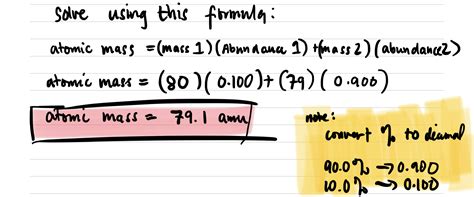 solve using this formula:
atomic mass = (mass 1)(Abundance 1) + (mass 2)(abundance2)
atomic mass = (80)(0.100)+(79)(0.900)
atomic mass = 79.1 amu
note:
convert % to decimal
90.0% → 0.900
10.0% → 0.100